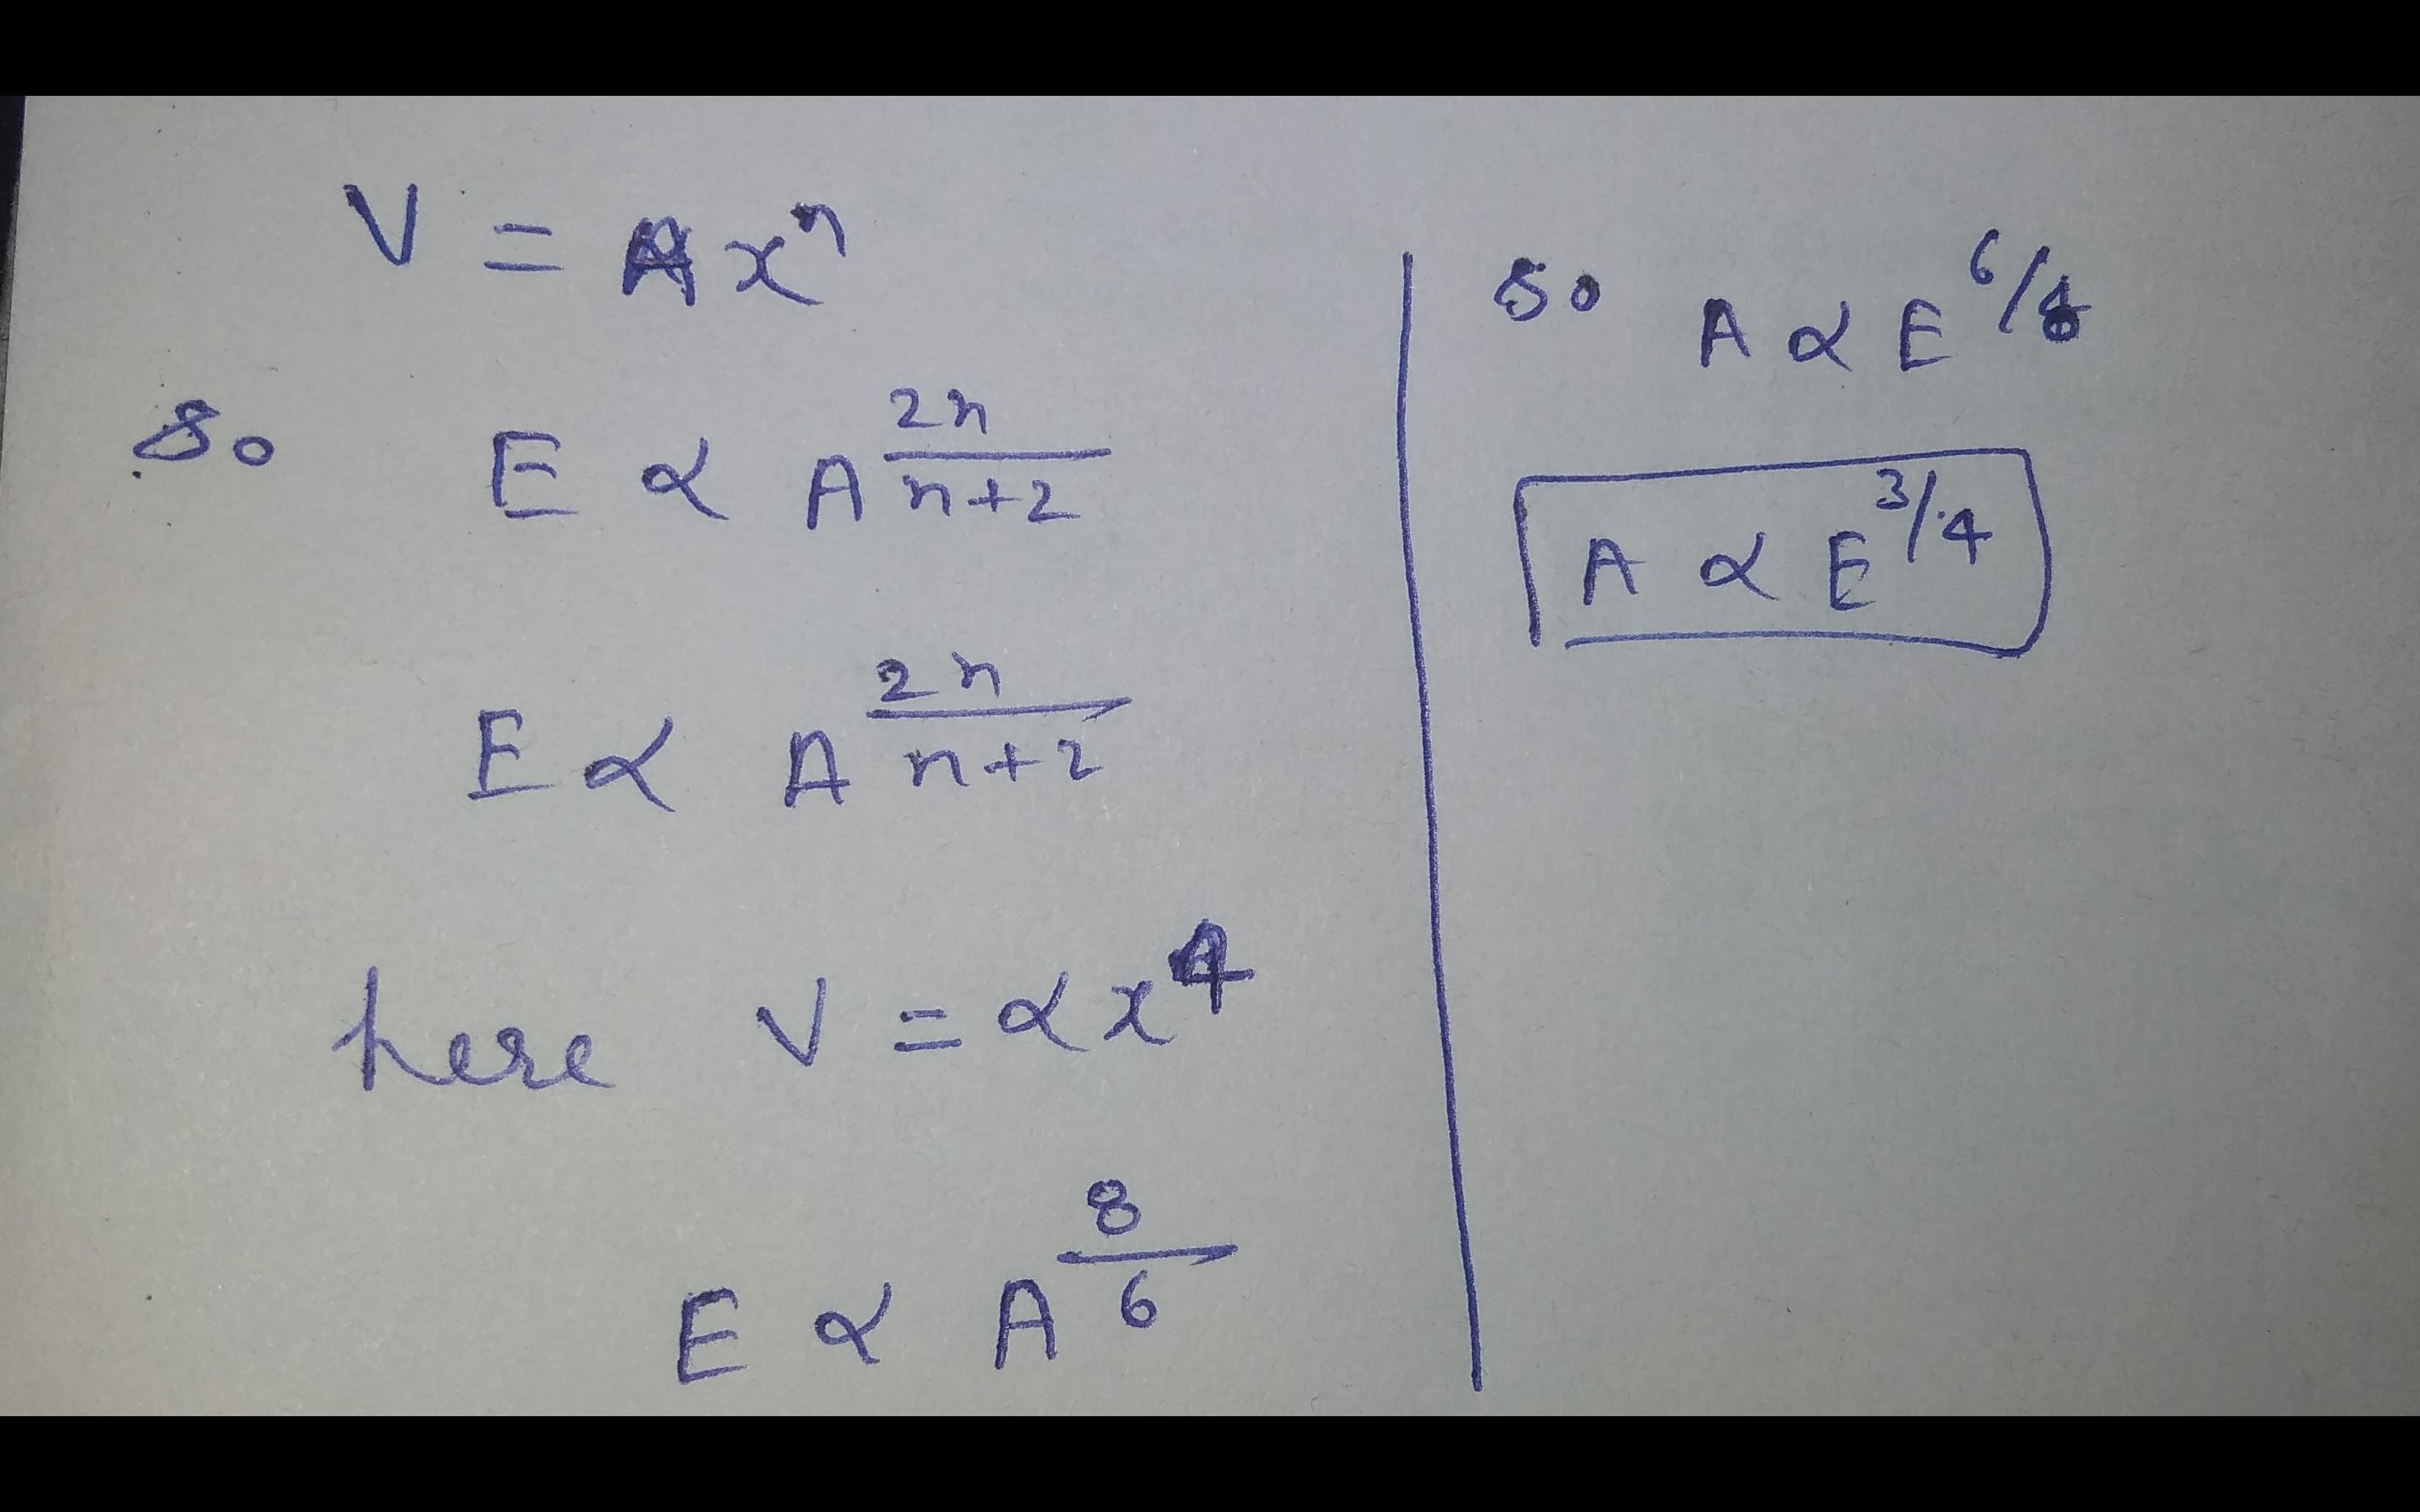 V = A xⁿ
So E ∝ A^(2n/(n+2))
E ∝ A^(2n/(n+2))
here V = αx⁴
E ∝ A^(8/6)
So A ∝ E^(6/8)
A ∝ E^(3/4)